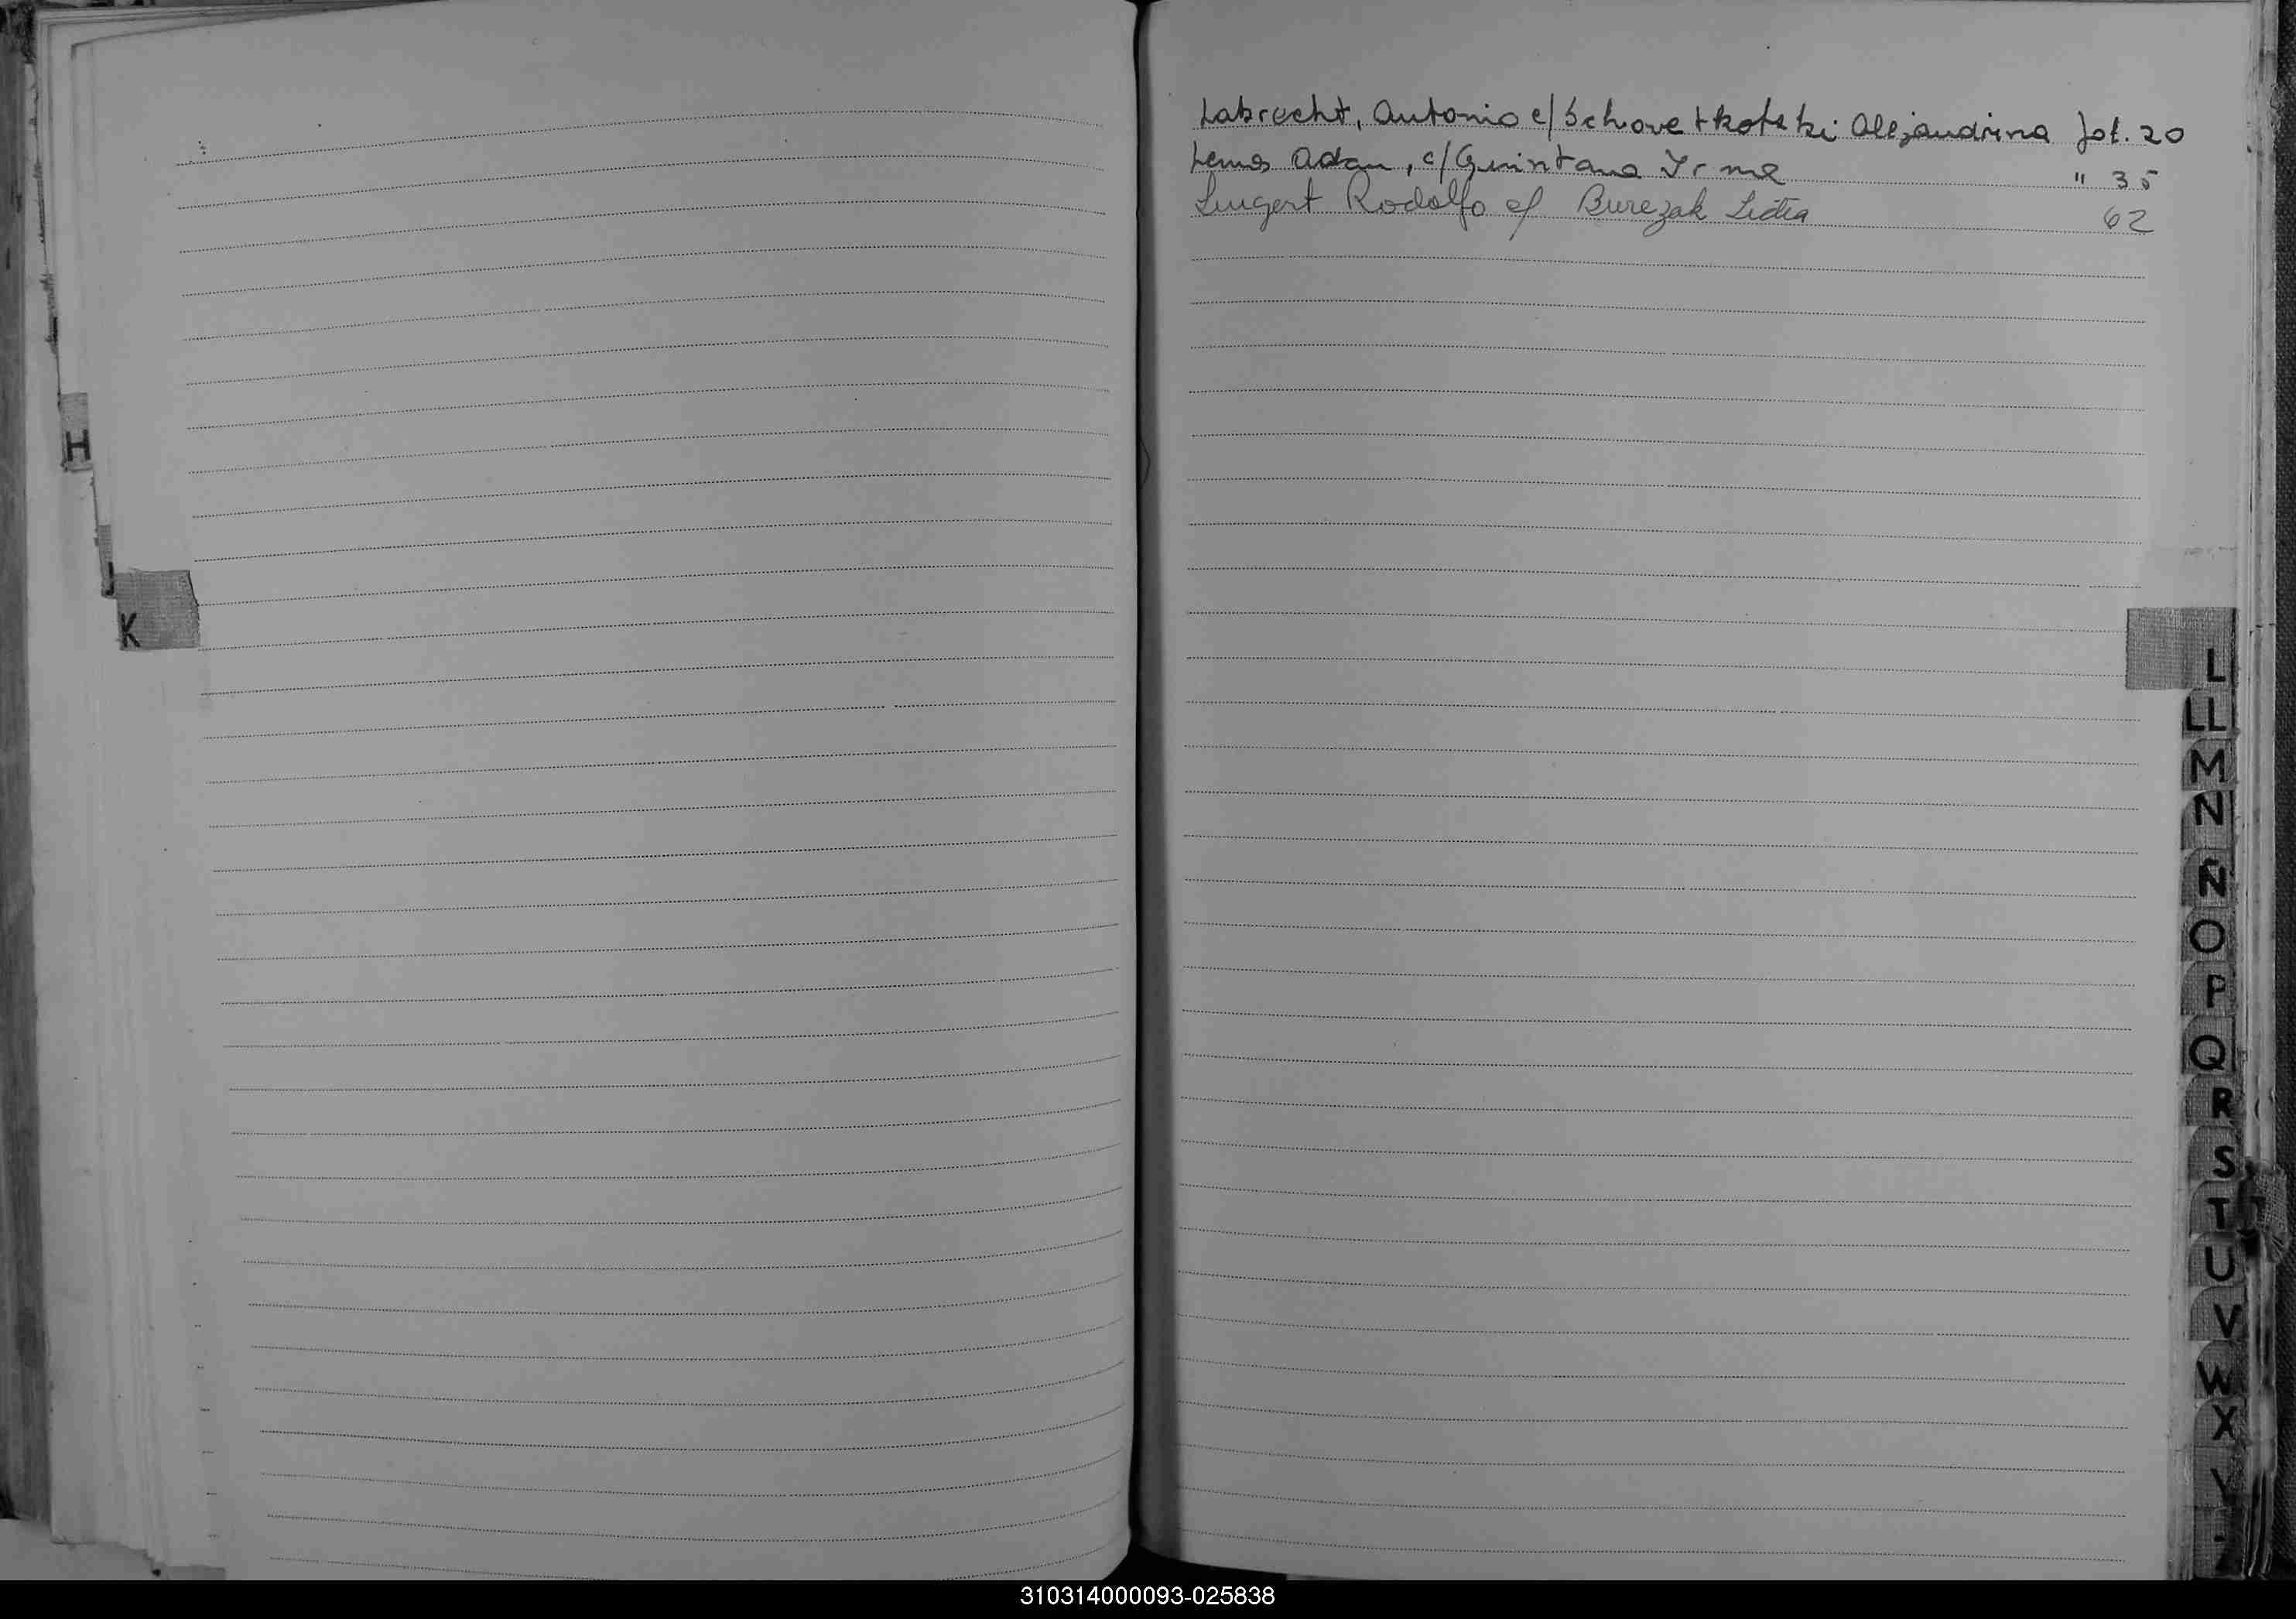 H
J
K
Labrecht, Antonio c/ Schovetkotski Alejandrina fol. 20
Lemos Adan, c/ Quintana Irma " 35
Lingert Rodolfo c/ Burezak Lidia 62
L
LL
M
N
Ñ
O
P
Q
R
S
T
U
V
W
X
Y
Z
310314000093-025838